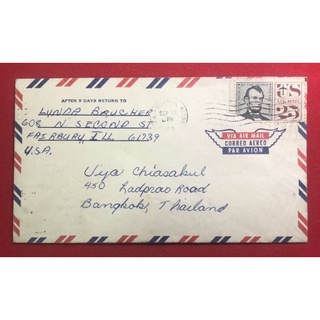 AFTER 5 DAYS RETURN TO
LYNDA BRUCHER
608 N. SECOND ST.
FAIRBURY, ILL 61739
U.S.A.
US
AIR MAIL
25
VIA AIR MAIL
CORREO AEREO
PAR AVION
Viya Chiasakul
450 Ladprao Road
Bangkok, Thailand